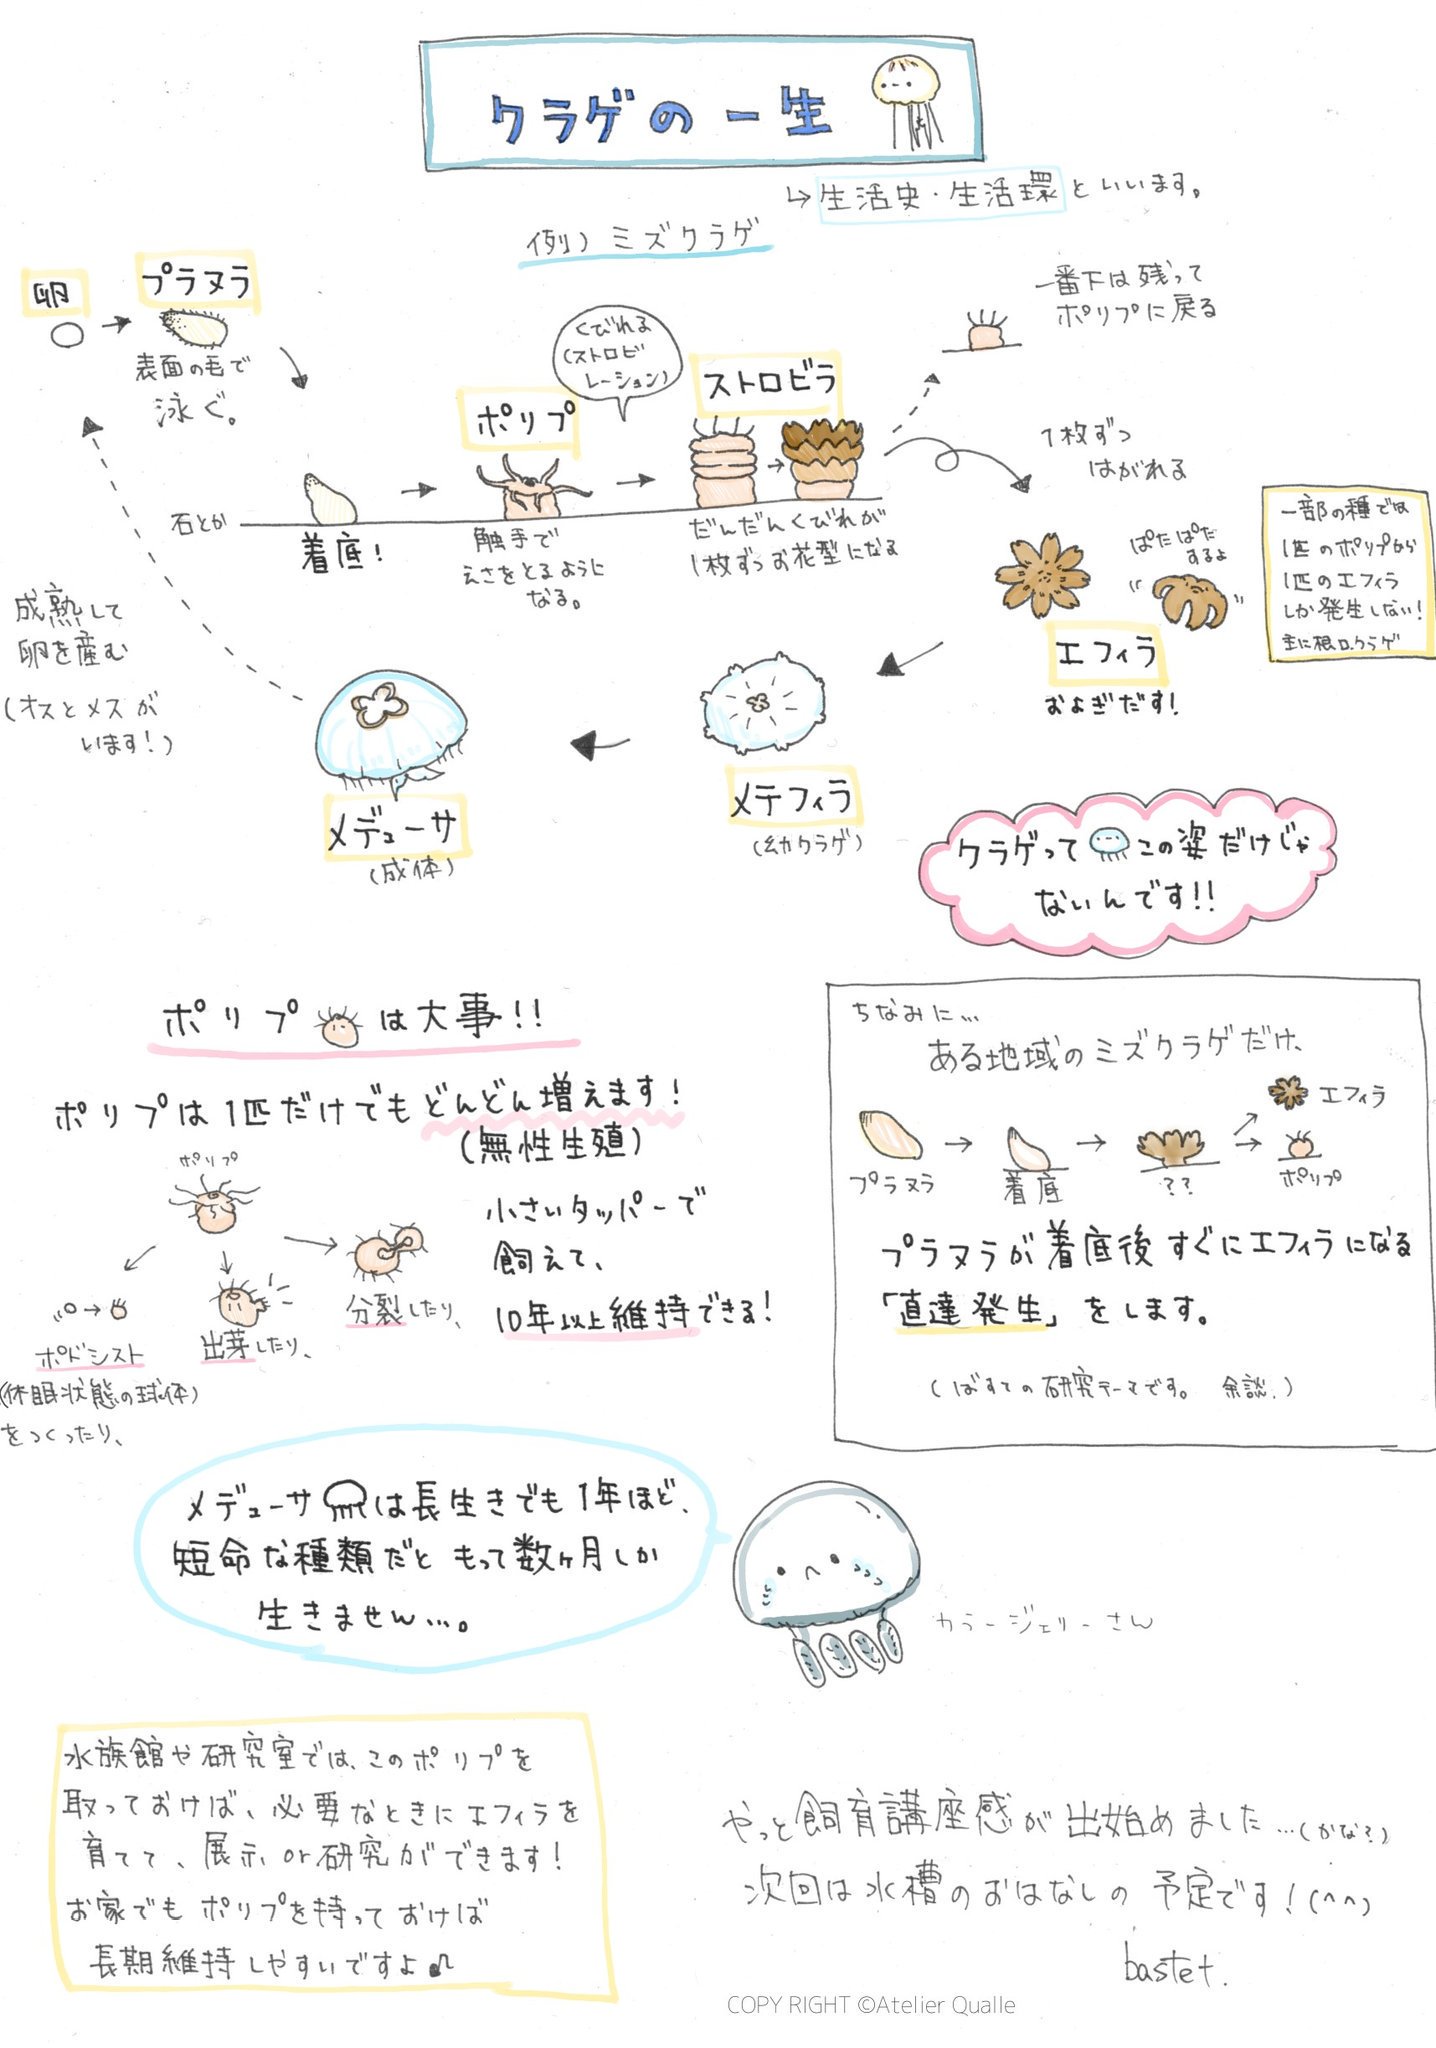 クラゲの一生
↳生活史・生活環といいます。
例）ミズクラゲ
卵
プラヌラ
表面の毛で
泳ぐ。
石とか
着底！
ポリプ
触手で
えさをとるように
なる。
くびれる
(ストロビ
レーション)
ストロビラ
だんだんくびれが
1枚ずつお花型になる
一番下は残って
ポリプに戻る
1枚ずつ
はがれる
ぱたぱた
するよ
エフィラ
およぎだす！
一部の種では
1匹のポリプから
1匹のエフィラ
しか発生しない！
主に根口クラゲ
メテフィラ
(幼クラゲ)
メデューサ
(成体)
成熟して
卵を産む
(オスとメスが
います！)
クラゲって この姿だけじゃ
ないんです!!
ポリプ は大事!!
ポリプは1匹だけでもどんどん増えます！
(無性生殖)
ポリプ
ポドシスト
(休眠状態の球体)
をつくったり、
出芽したり、
分裂したり、
小さいタッパーで
飼えて、
10年以上維持できる！
ちなみに…
ある地域のミズクラゲだけ、
プラヌラ
着底
??
エフィラ
ポリプ
プラヌラが着底後すぐにエフィラになる
「直達発生」をします。
(ばすての研究テーマです。 余談.)
メデューサ は長生きでも1年ほど、
短命な種類だと もって数ヶ月しか
生きません…。
カラージェリーさん
水族館や研究室では、このポリプを
取っておけば、必要なときにエフィラを
育てて、展示or研究ができます！
お家でもポリプを持っておけば
長期維持しやすいですよ♫
やっと飼育講座感が出始めました…(かな?)
次回は水槽のおはなしの予定です！(^^)
bastet.
COPY RIGHT ©Atelier Qualle